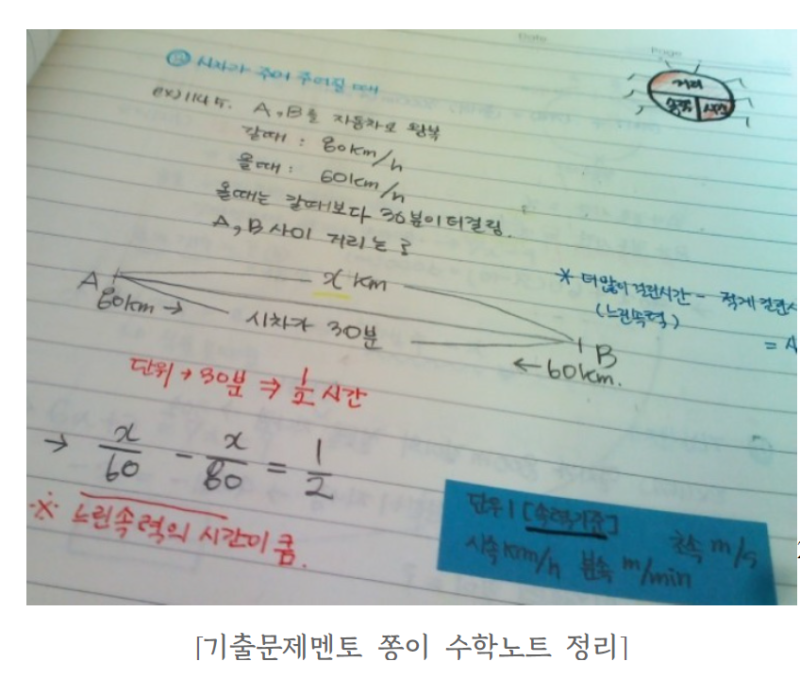 거리
속력 시간
② 시차가 주어 주어질 때
ex) 1145. A, B를 자동차로 왕복
갈때 : 80km/h
올때 : 60km/h
올때는 갈때보다 30분이 더걸림.
A, B 사이 거리는 ?
A
x km
80km →
시차가 30분
B
← 60km.
* 더많이 걸린시간 - 적게 걸린시
(느린속력)
= A
단위 → 30분 ⇒ 1/2 시간
→ x/60 - x/80 = 1/2
※ 느린속력의 시간이 큼.
단위 | [속력기준]
시속 km/h 분속 m/min 초속 m/s
[기출문제멘토 쫑이 수학노트 정리]